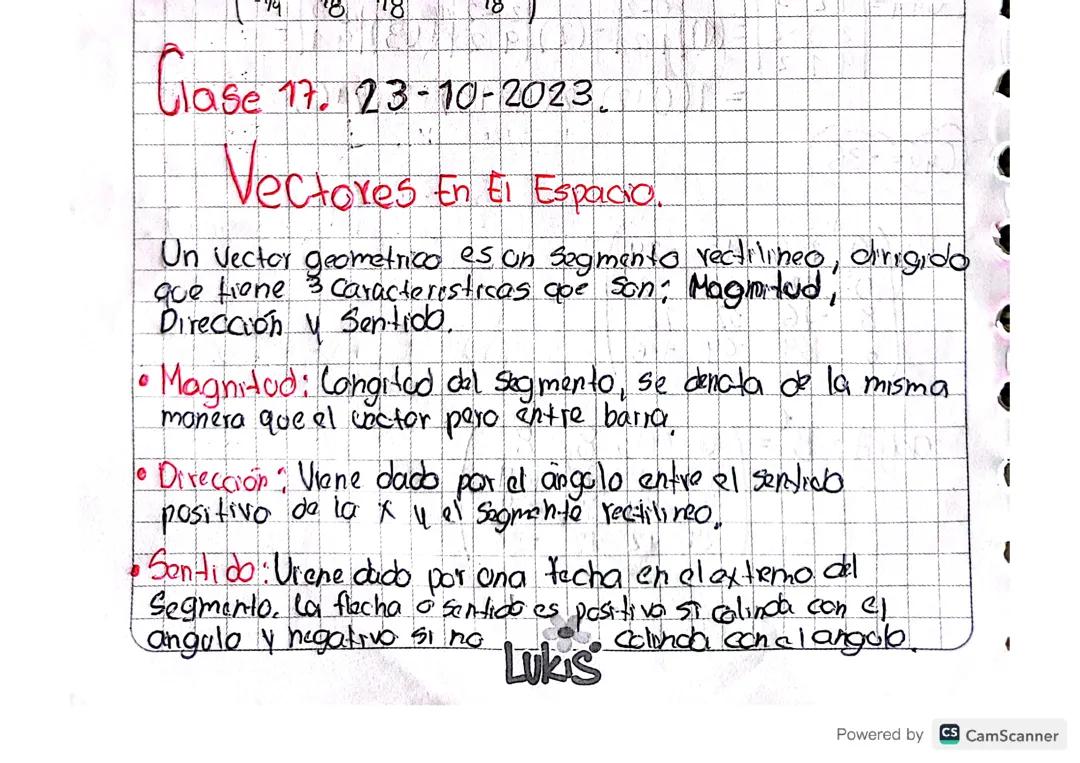 Clase 17. 23-10-2023.
Vectores En El Espacio.
Un vector geometrico es un segmento rectilineo, dirigido
que tiene 3 caracteristicas que son: Magnitud,
Dirección y Sentido.
• Magnitud: Longitud del segmento, se denota de la misma
manera que el vector pero entre barra.
• Dirección: Viene dado por el ángulo entre el sentido
positivo de la x y el segmento rectilineo.
• Sentido: Viene dado por una fecha en el extremo del
segmento. La flecha o sentido es positivo si colinda con el
angulo y negativo si no colinda con el angulo.
LUKIS
Powered by CS CamScanner